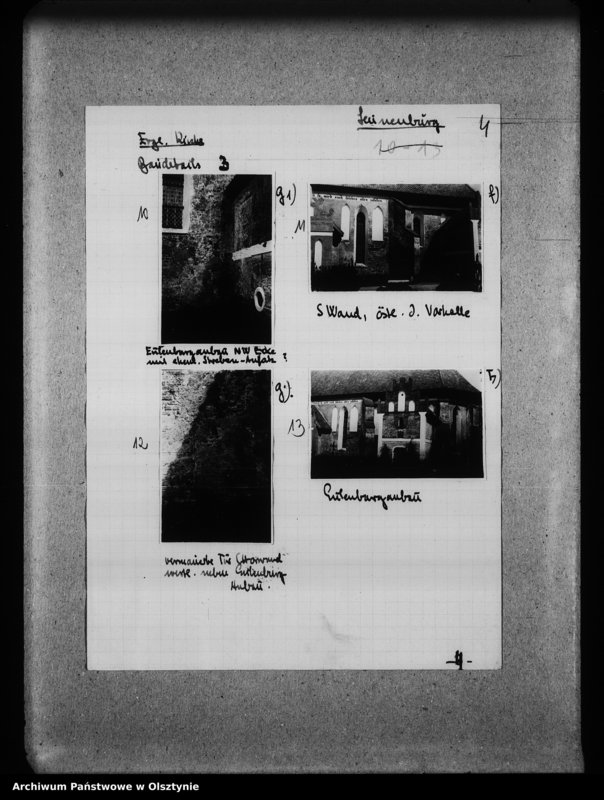 Leunenburg 4
10-13
Ergl. Kirche
Baudetails 3
10
g1)
11
f)
S Wand, östl. d. Vorhalle
Eulenburganbau NW Ecke
mit ehem. Streben-Aufsatz ?
12
g).
13
h)
Eulenburganbau
vermauerte Tür
westl. neben Eulenburg
Anbau.
-4-
Archiwum Państwowe w Olsztynie